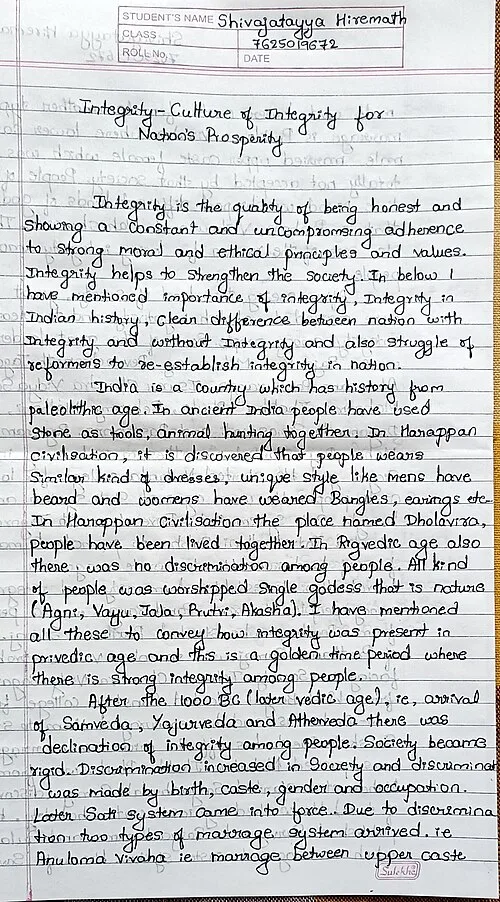 STUDENT'S NAME Shivajatayya Hiremath
CLASS 7625019672
ROLL No. DATE
Integrity - Culture of Integrity for
Nation's Prosperity
Integrity is the quality of being honest and
Showing a constant and uncompromsing adherence
to strong moral and ethical principles and values.
Integrity helps to strengthen the society. In below I
have mentioned importance of integrity, Integrity in
Indian history, Clean difference between nation with
Integrity and without Integrity and also struggle of
reformers to re-establish integrity in nation.
India is a country which has history from
paleolithic age. In ancient India people have used
stone as tools, animal hunting together. In Harappan
civilisation, it is discovered that people wears
Similar kind of dresses, unique style like mens have
beard and womens have weared Bangles, earings etc
In Harappan Civilisation the place named Dholavira,
people have been lived together. In Rigvedic age also
there was no discrimination among people. All kind
of people was worshipped single godess that is nature
(Agni, Vayu, Jala, Prutvi, Akasha). I have mentioned
all these to convey how integrity was present in
privedic age and this is a golden time period where
there is strong integrity among people.
After the 1000 BC (later vedic age), ie, arrival
of Samveda, Yajurveda and Atherveda there was
declination of integrity among people. Society became
rigid. Discrimination increased in Society and discriminat
was made by birth, caste, gender and occupation.
Later Sati system came into force. Due to discrimina
tion two types of marrage system arrived. ie
Anuloma vivaha ie marrage between upper caste
Sulekha